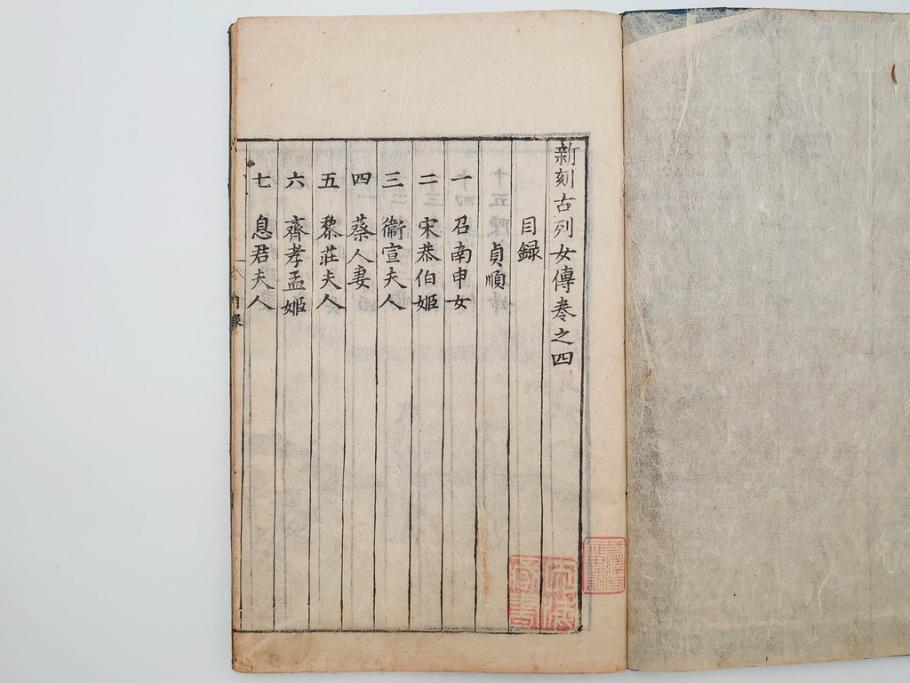 新刻古列女傳卷之四
目録
貞順
一 召南申女
二 宋恭伯姬
三 衞宣夫人
四 蔡人妻
五 黎莊夫人
六 齊孝孟姬
七 息君夫人
目録